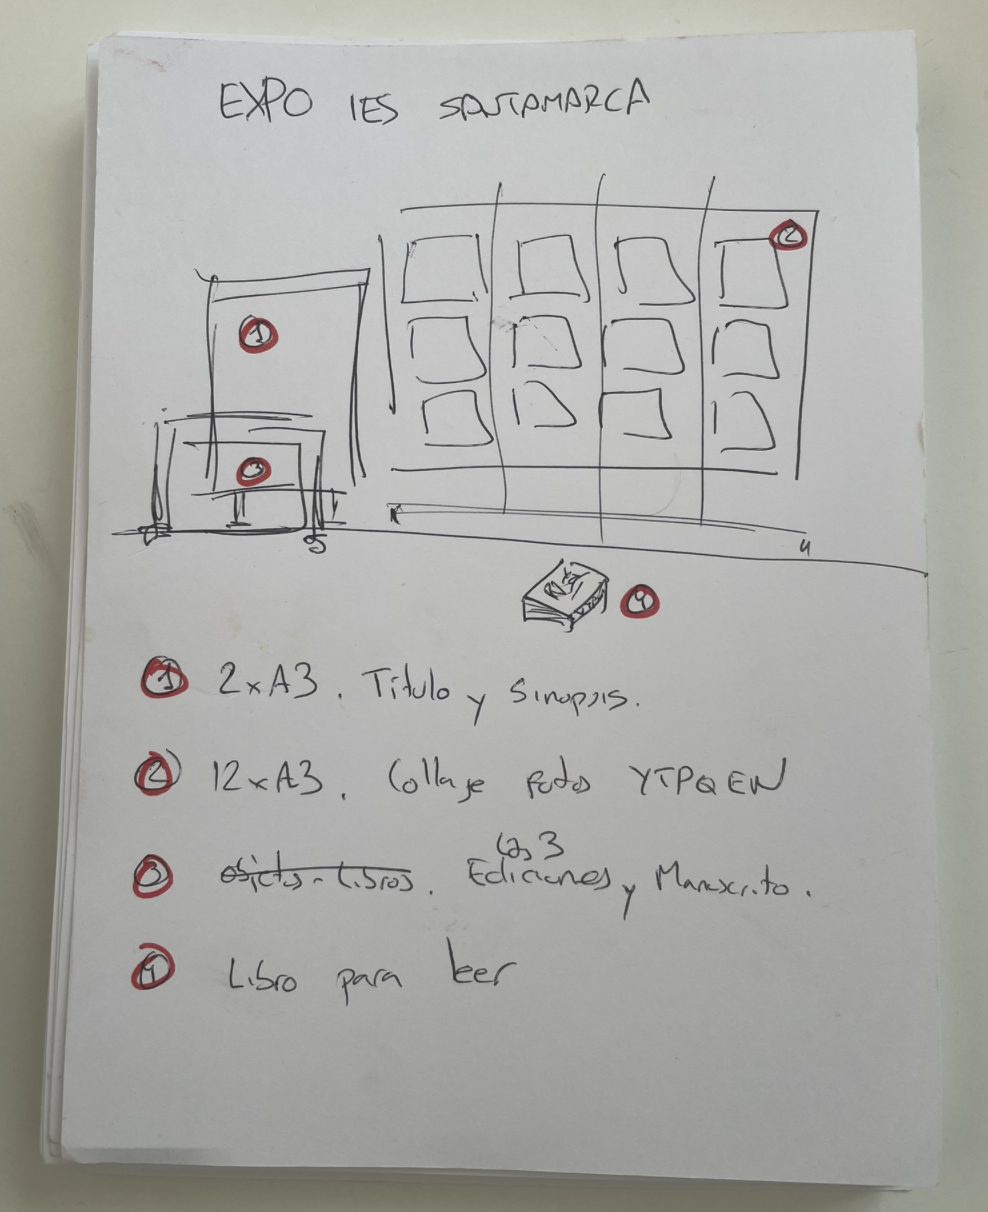 EXPO IES SANTAMARCA
2
1
3
4
1 2xA3. Título y Sinopsis.
2 12xA3. Collage fotos YTPQEW
Las 3
3 Objetos - Libros. Ediciones y Manuscrito.
4 Libro para leer